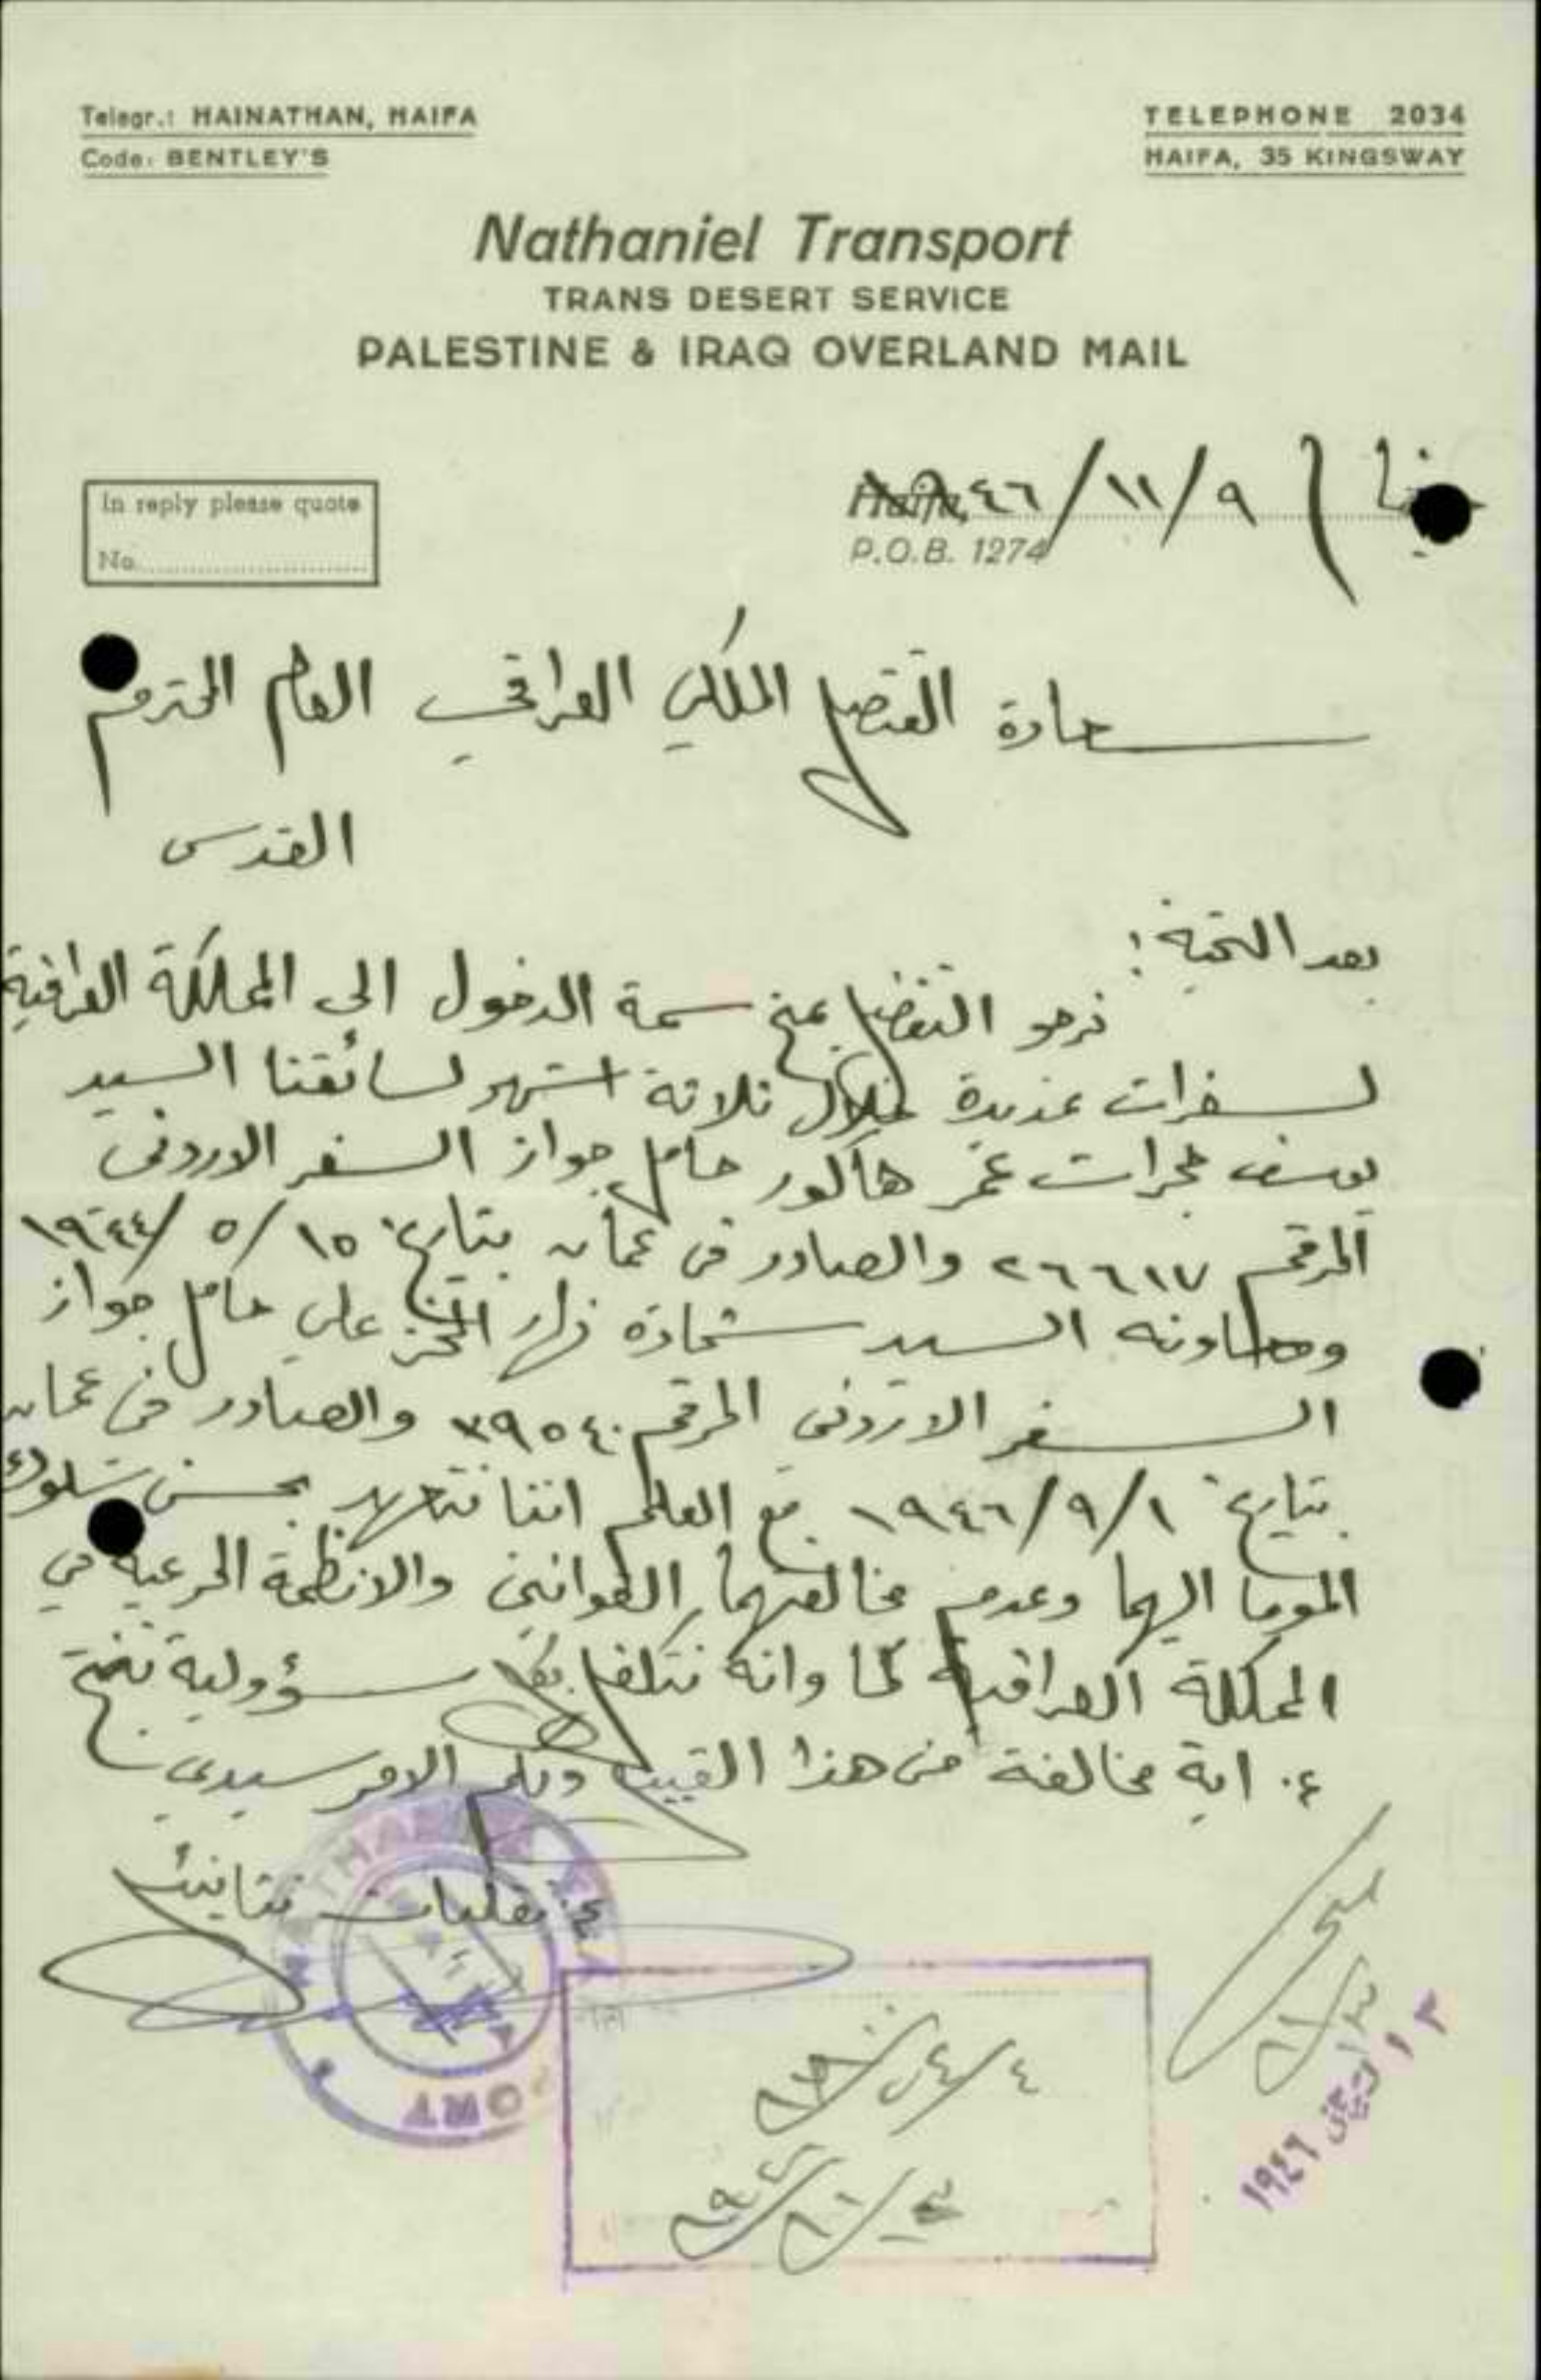 Telegr.: HAINATHAN, HAIFA
Code: BENTLEY'S
TELEPHONE 2034
HAIFA, 35 KINGSWAY
Nathaniel Transport
TRANS DESERT SERVICE
PALESTINE & IRAQ OVERLAND MAIL
In reply please quote
No.
Haifa, ٩/١١/٤٦
P.O.B. 1274
سعادة القنصل الملكي العراقي العام المحترم
القدس
بعد التحية:
نرجو التفضل بمنح سمة الدخول الى المملكة العراقية
لسفرات عديدة خلال ثلاثة اشهر لسائقنا السيد
يوسف عمر هاكور حامل جواز السفر الاردني
المرقم ٢٦٦١٧ والصادر في عمان بتاريخ ١٥/٥/١٩٤٤
ومعاونه السيد شحادة علي حامل جواز
السفر الاردني المرقم ٣٩٥٤٠ والصادر في عمان
بتاريخ ١/٩/١٩٤٦ مع العلم اننا نتعهد بحسن سلوك
الموما اليهما وعدم مخالفتهما القوانين والانظمة المرعية في
المملكة العراقية كما وانه نتكفل بكل مسؤولية تنتج
عن اية مخالفة من هذا القبيل ولكم الامر سيدي
عن نقليات نتانيل
NATHANIEL
PORT
١٩٤٦